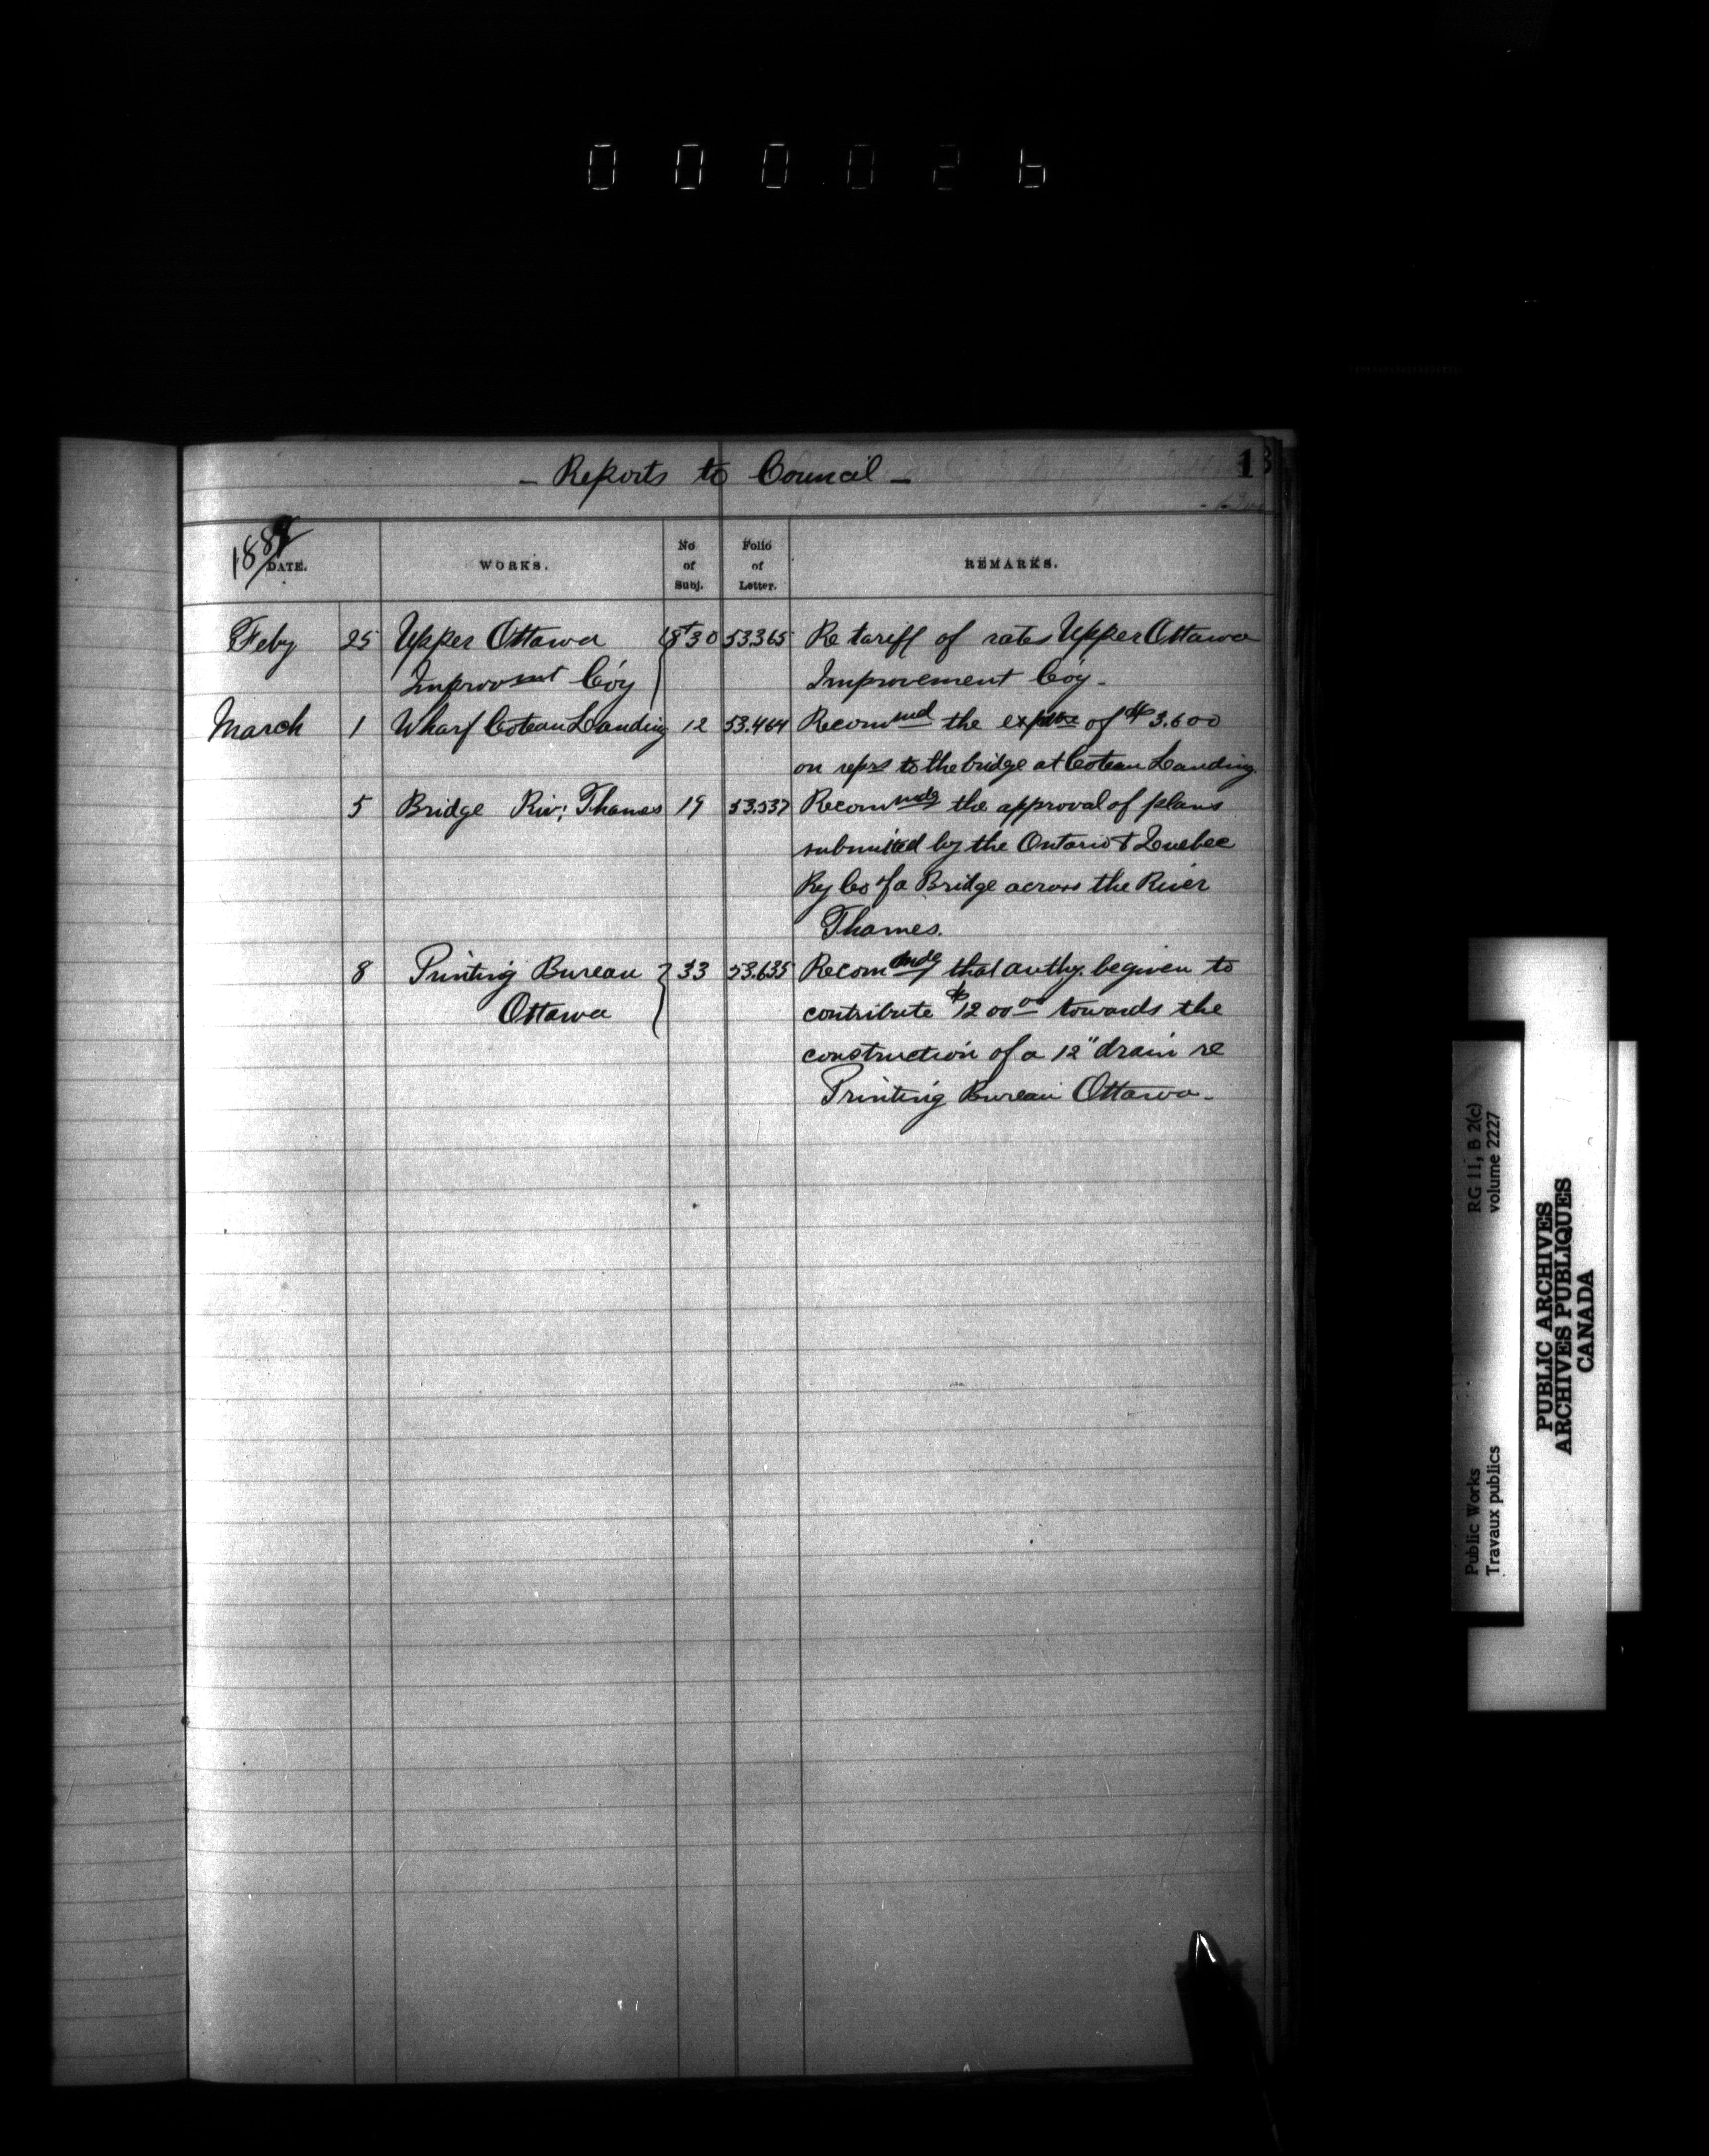 000026
- Reports to Council -
1
1889
DATE.
WORKS.
No of Subj.
Folio of Letter.
REMARKS.
Feby 25 Upper Ottawa 8+30 53365 Re tariff of rates Upper Ottawa
Improvmt Co'y Improvement Co'y -
March 1 Wharf Coteau Landing 12 53.464 Recommd the expdre of $3.600
on reprs to the bridge at Coteau Landing.
5 Bridge Riv: Thames 19 53.537 Recommdg the approval of plans
submitted by the Ontario & Quebec
Ry Co of a Bridge across the River
Thames.
8 Printing Bureau 33 53.635 Recommdg that authy. be given to
Ottawa contribute $1200 00 towards the
construction of a 12" drain re
Printing Bureau Ottawa -
RG 11, B 2(c)
volume 2227
Public Works
Travaux publics
PUBLIC ARCHIVES
ARCHIVES PUBLIQUES
CANADA